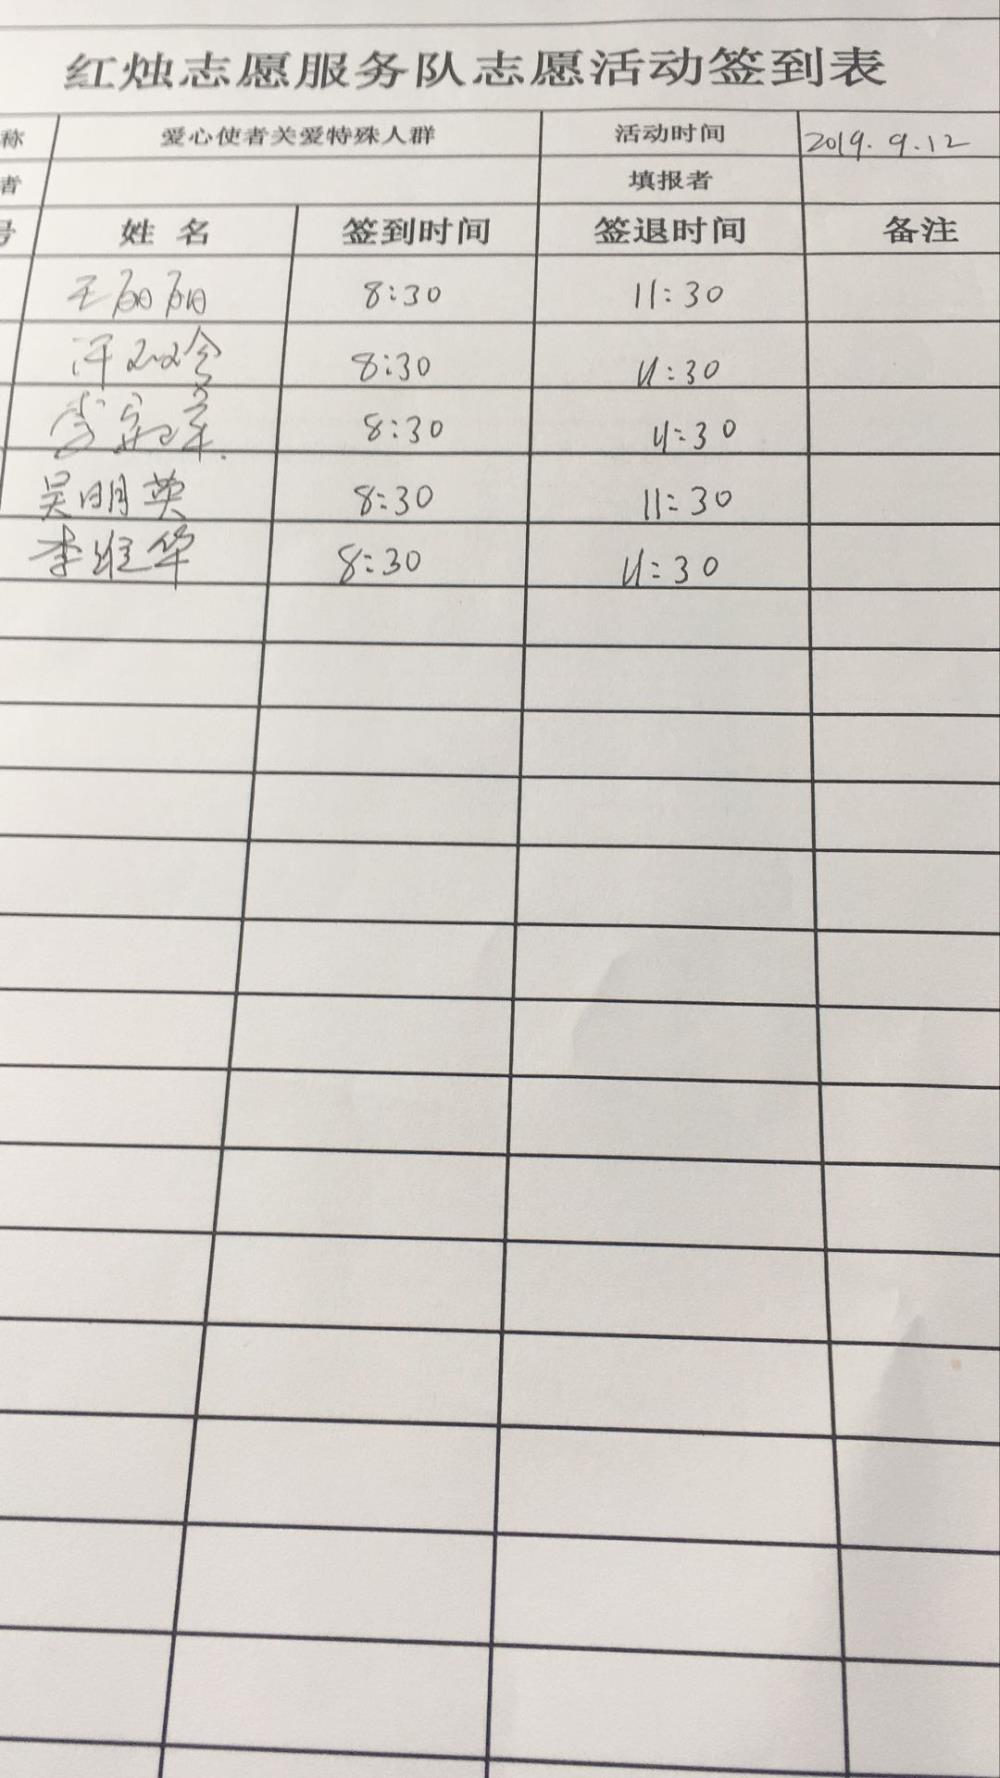 红烛志愿服务队志愿活动签到表
称 爱心使者关爱特殊人群 活动时间 2019.9.12
者 填报者
号 姓名 签到时间 签退时间 备注
王丽阳 8:30 11:30
8:30 11:30
李 8:30 11:30
吴明英 8:30 11:30
李维华 8:30 11:30